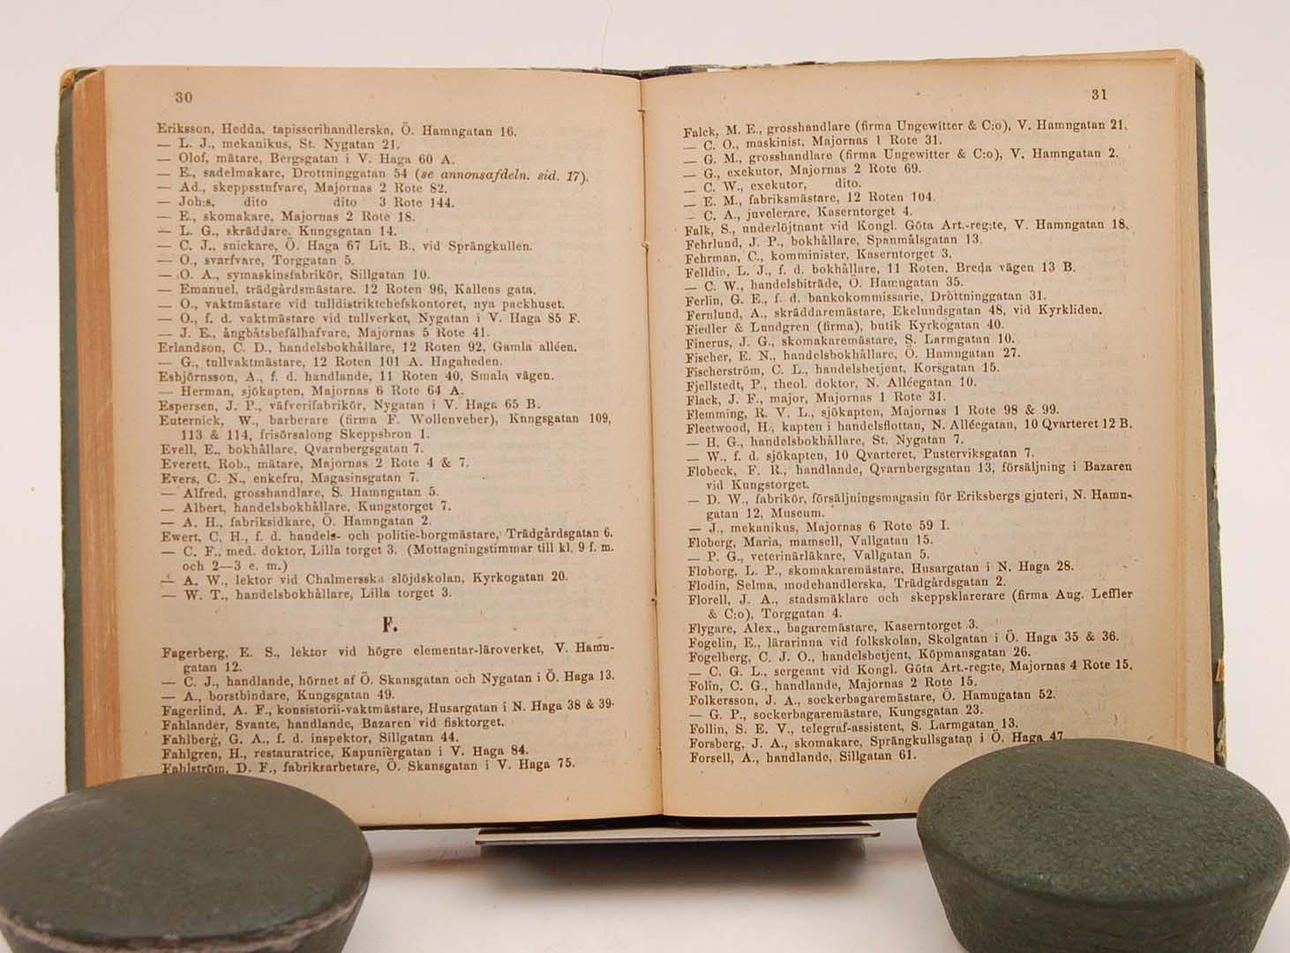 30
Eriksson, Hedda, tapisserihandlerska, Ö. Hamngatan 16.
— L. J., mekanikus, St. Nygatan 21.
— Olof, mätare, Bergsgatan i V. Haga 60 A.
— E., sadelmakare, Drottninggatan 54 (se annonsafdeln. sid. 17).
— Ad., skeppsstufvare, Majornas 2 Rote 82.
— Joh:s, dito dito 3 Rote 144.
— E., skomakare, Majornas 2 Rote 18.
— L. G., skräddare, Kungsgatan 14.
— C. J., snickare, Ö. Haga 67 Lit. B., vid Sprängkullen.
— O., svarfvare, Torggatan 5.
— O. A., symaskinsfabrikör, Sillgatan 10.
— Emanuel, trädgårdsmästare. 12 Roten 96, Kallens gata.
— O., vaktmästare vid tulldistriktchefskontoret, nya packhuset.
— O., f. d. vaktmästare vid tullverket, Nygatan i V. Haga 85 F.
— J. E., ångbåtsbefälhafvare, Majornas 5 Rote 41.
Erlandson, C. D., handelsbokhållare, 12 Roten 92, Gamla alléen.
— G., tullvaktmästare, 12 Roten 101 A. Hagaheden.
Esbjörnsson, A., f. d. handlande, 11 Roten 40, Smala vägen.
— Herman, sjökapten, Majornas 6 Rote 64 A.
Espersen, J. P., väfverifabrikör, Nygatan i V. Haga 65 B.
Euternick, W., barberare (firma F. Wollenveber), Kungsgatan 109,
113 & 114, frisörsalong Skeppsbron 1.
Evell, E., bokhållare, Qvarnbergsgatan 7.
Everett, Rob., mätare, Majornas 2 Rote 4 & 7.
Evers, C. N., enkefru, Magasinsgatan 7.
— Alfred, grosshandlare, S. Hamngatan 5.
— Albert, handelsbokhållare, Kungstorget 7.
— A. H., fabriksidkare, Ö. Hamngatan 2.
Ewert, C. H., f. d. handels- och politie-borgmästare, Trädgårdsgatan 6.
— C. F., med. doktor, Lilla torget 3. (Mottagningstimmar till kl. 9 f. m.
och 2—3 e. m.)
— A. W., lektor vid Chalmersska slöjdskolan, Kyrkogatan 20.
— W. T., handelsbokhållare, Lilla torget 3.
F.
Fagerberg, E. S., lektor vid högre elementar-läroverket, V. Hamn-
gatan 12.
— C. J., handlande, hörnet af Ö. Skansgatan och Nygatan i Ö. Haga 13.
— A., borstbindare, Kungsgatan 49.
Fagerlind, A. F., konsistorii-vaktmästare, Husargatan i N. Haga 38 & 39.
Fahlander, Svante, handlande, Bazaren vid fisktorget.
Fahlberg, G. A., f. d. inspektor, Sillgatan 44.
Fahlgren, H., restauratrice, Kapuniergatan i V. Haga 84.
Fahlström, D. F., fabriksarbetare, Ö. Skansgatan i V. Haga 75.
31
Falck, M. E., grosshandlare (firma Ungewitter & C:o), V. Hamngatan 21.
— C. O., maskinist, Majornas 1 Rote 31.
— G. M., grosshandlare (firma Ungewitter & C:o), V. Hamngatan 2.
— G., exekutor, Majornas 2 Rote 69.
— C. W., exekutor, dito.
— E. M., fabriksmästare, 12 Roten 104.
— C. A., juvelerare, Kaserntorget 4.
Falk, S., underlöjtnant vid Kongl. Göta Art.-reg:te, V. Hamngatan 18.
Fehrlund, J. P., bokhållare, Spanmålsgatan 13.
Fehrman, C., komminister, Kaserntorget 3.
Felldin, L. J., f. d. bokhållare, 11 Roten, Breda vägen 13 B.
— C. W., handelsbiträde, Ö. Hamngatan 35.
Ferlin, G. E., f. d. bankokommissarie, Drottninggatan 31.
Fernlund, A., skräddaremästare, Ekelundsgatan 48, vid Kyrkliden.
Fiedler & Lundgren (firma), butik Kyrkogatan 40.
Finerus, J. G., skomakaremästare, S. Larmgatan 10.
Fischer, E. N., handelsbokhållare, Ö. Hamngatan 27.
Fischerström, C. L., handelsbetjent, Korsgatan 15.
Fjellstedt, P., theol. doktor, N. Alléegatan 10.
Flack, J. F., major, Majornas 1 Rote 31.
Flemming, R. V. L., sjökapten, Majornas 1 Rote 98 & 99.
Fleetwood, H., kapten i handelsflottan, N. Alléegatan, 10 Qvarteret 12 B.
— H. G., handelsbokhållare, St. Nygatan 7.
— W., f. d. sjökapten, 10 Qvarteret, Pusterviksgatan 7.
Flobeck, F. R., handlande, Qvarnbergsgatan 13, försäljning i Bazaren
vid Kungstorget.
— D. W., fabrikör, försäljningsmagasin för Eriksbergs gjuteri, N. Hamn-
gatan 12, Museum.
— J., mekanikus, Majornas 6 Rote 59 I.
Floberg, Maria, mamsell, Vallgatan 15.
— P. G., veterinärläkare, Vallgatan 5.
Floborg, L. P., skomakaremästare, Husargatan i N. Haga 28.
Flodin, Selma, modehandlerska, Trädgårdsgatan 2.
Florell, J. A., stadsmäklare och skeppsklarerare (firma Aug. Leffler
& C:o), Torggatan 4.
Flygare, Alex., bagaremästare, Kaserntorget 3.
Fogelin, E., lärarinna vid folkskolan, Skolgatan i Ö. Haga 35 & 36.
Fogelberg, C. J. O., handelsbetjent, Köpmansgatan 26.
— C. G. L., sergeant vid Kongl. Göta Art.-reg:te, Majornas 4 Rote 15.
Folin, C. G., handlande, Majornas 2 Rote 15.
Folkersson, J. A., sockerbagaremästare, Ö. Hamngatan 52.
— G. P., sockerbagaremästare, Kungsgatan 23.
Follin, S. E. V., telegraf-assistent, S. Larmgatan 13.
Forsberg, J. A., skomakare, Sprängkullsgatan i Ö. Haga 47
Forsell, A., handlande, Sillgatan 61.